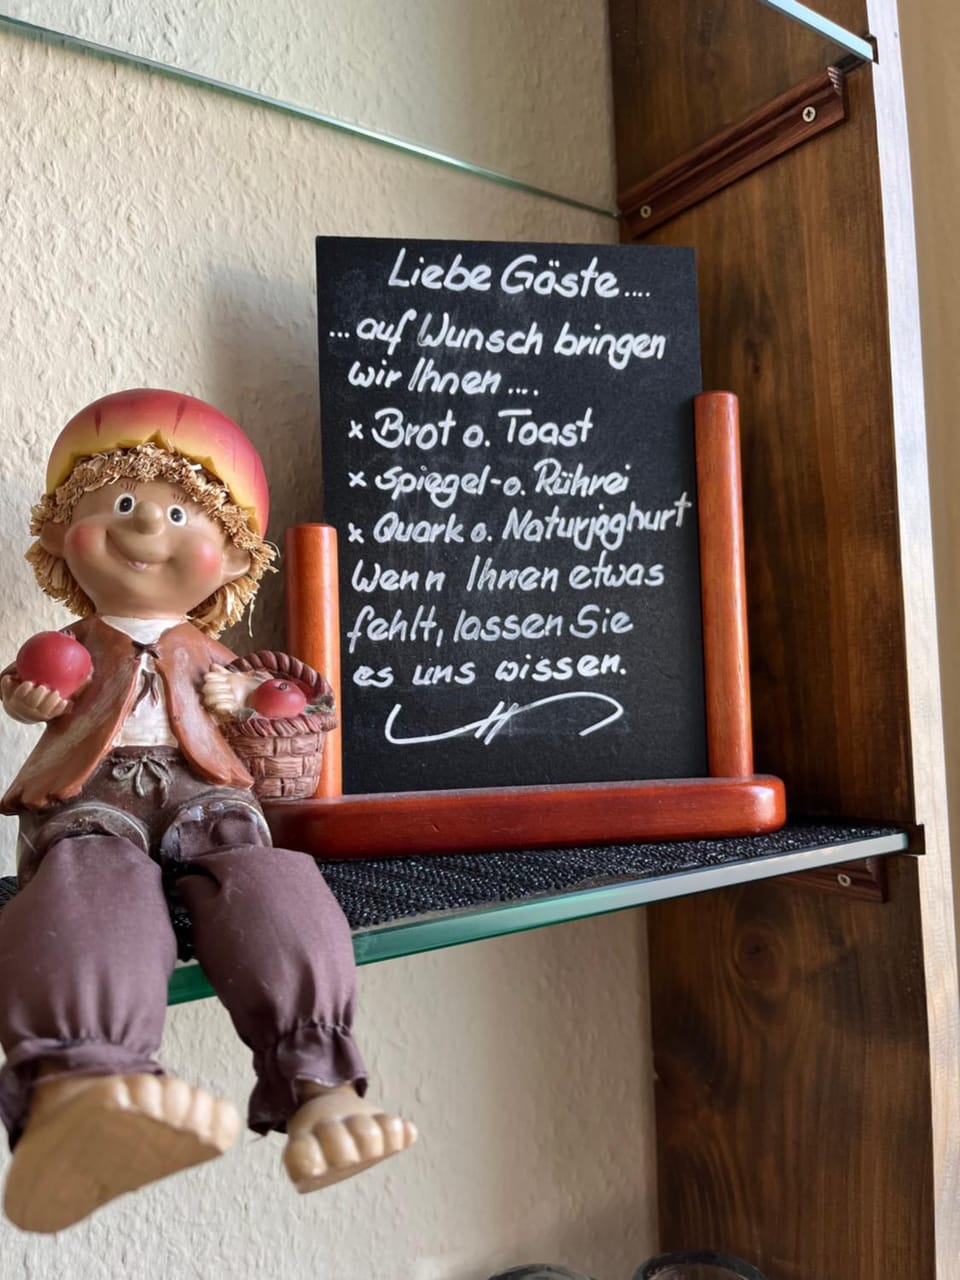 Liebe Gäste....
...auf Wunsch bringen
wir Ihnen....
x Brot o. Toast
x Spiegel-o. Rührei
x Quark o. Naturjoghurt
Wenn Ihnen etwas
fehlt, lassen Sie
es uns wissen.